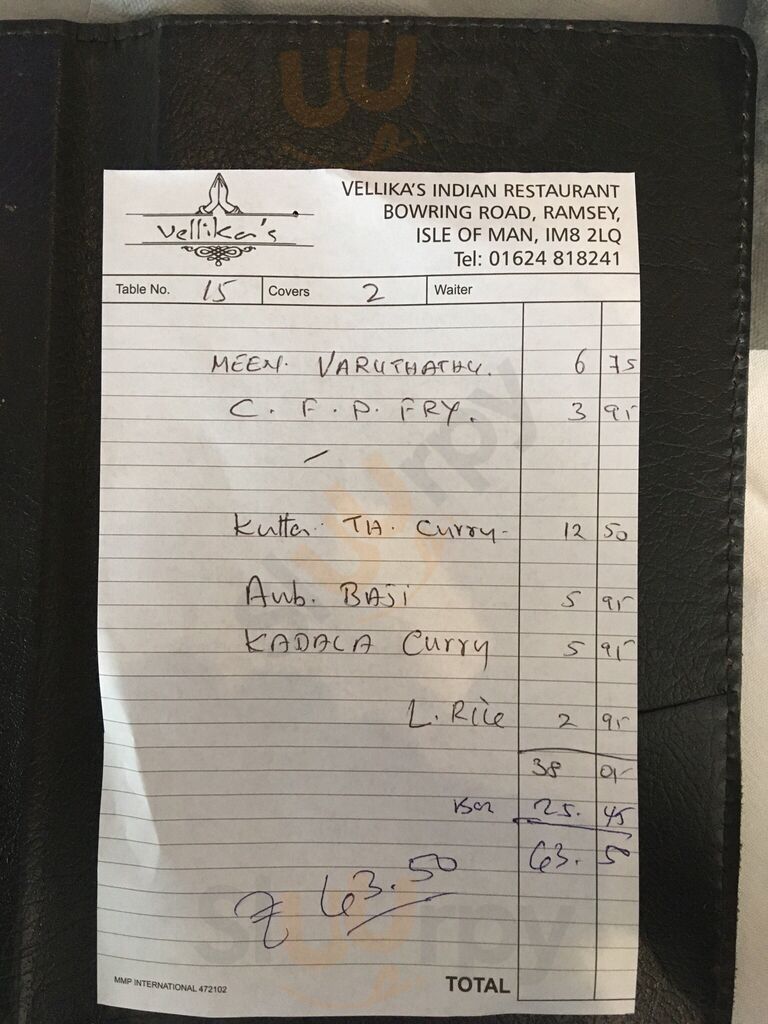 vellika's
VELLIKA'S INDIAN RESTAURANT
BOWRING ROAD, RAMSEY,
ISLE OF MAN, IM8 2LQ
Tel: 01624 818241
Table No. 15 Covers 2 Waiter
MEEN. VARUTHATHU. 6 75
C. F. P. FRY. 3 95
Kutta TH. Curry- 12 50
Aub. BAJI 5 95
KADALA Curry 5 95
L. Rice 2 95
38 05
Bar 25. 45
63. 5
£ 63.50
MMP INTERNATIONAL 472102
TOTAL
Sluurpy
Sluurpy